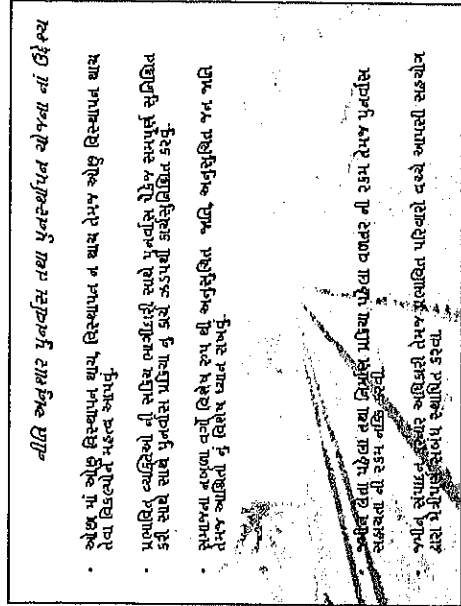 નીતિ અનુસાર પુનર્વાસ તથા પુનસ્થાપન યોજના નાં ઉદ્દેશ્ય
• ઓછા માં ઓછુ વિસ્થાપન થાય, વિસ્થાપન ન થાય તેમજ ઓછુ વિસ્થાપન થાય
તેવા વિકલ્પોને મહત્વ આપવું.
• પ્રભાવિત વ્યક્તિઓ ની સક્રિય ભાગીદારી સાથે પુનર્વાસ પેકેજ સમપૂર્ણ સુનિશ્ચિત
કરી સાથે સાથે પુનર્વાસ પ્રક્રિયા નુ કાર્ય ઝડપથી કાર્યસુનિશ્ચિત કરવુ.
• સમાજના નબળા વર્ગો વિશેષ રુપ થી અનુસુચિત જાતિ, અનુસુચિત જન જાતિ
તેમજ આશ્રિતો નુ વિશેષ ધ્યાન રાખવુ.
• જમીન લેતા પહેલા તથા નિર્માણ પ્રક્રિયા પહેલા વળતર ની રકમ તેમજ પુનર્વાસ
સહાયતા ની રકમ નક્કિ કરવી.
• જમીન સંપાદન કરનાર અધિકારી તેમજ પ્રભાવિત પરિવારો વચ્ચે આપસી સહયોગ
દ્વારા મૈત્રીપૂર્ણ સંબંધ સ્થાપિત કરવા.